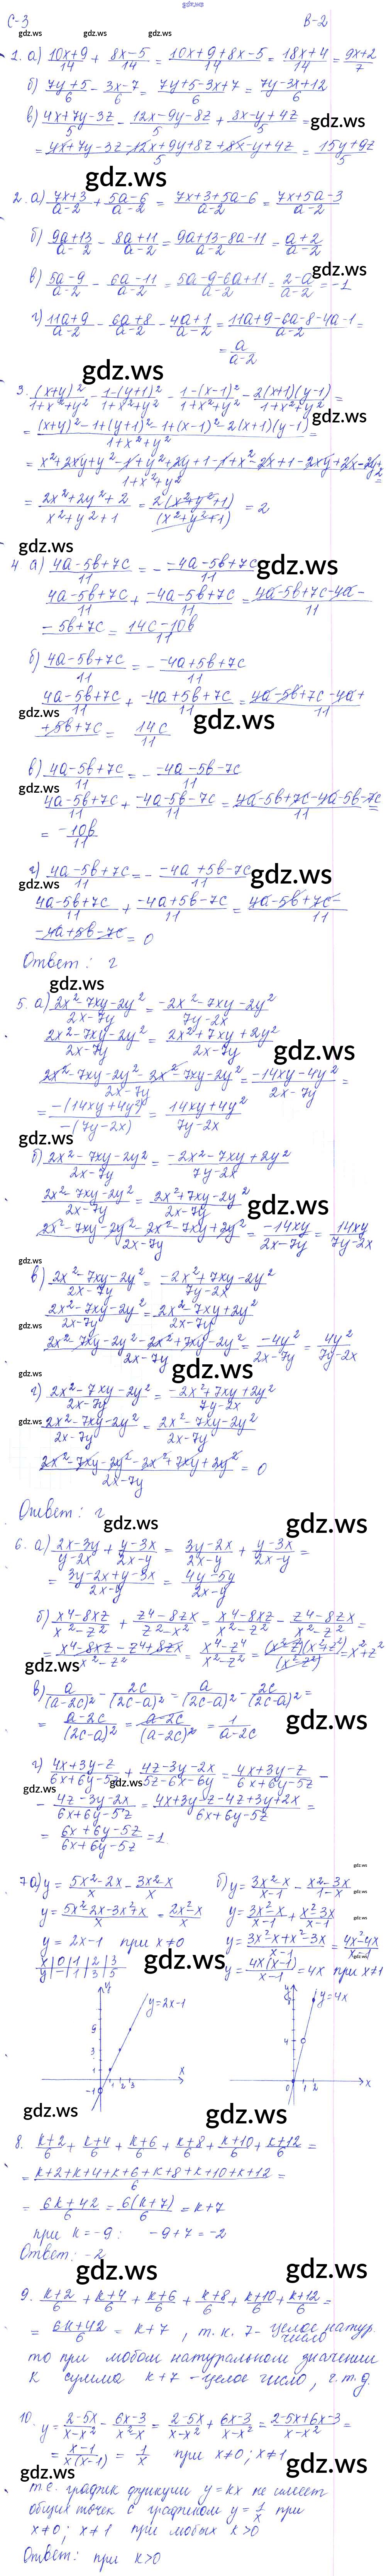 gdz.ws
С-3 В-2
1. а) (10x+9)/14 + (8x-5)/14 = (10x+9+8x-5)/14 = (18x+4)/14 = (9x+2)/7
б) (7y+5)/6 - (3x-7)/6 = (7y+5-3x+7)/6 = (7y-3x+12)/6
в) (4x+7y-3z)/5 - (12x-9y-8z)/5 + (8x-y+4z)/5 =
= (4x+7y-3z-12x+9y+8z+8x-y+4z)/5 = (15y+9z)/5
2. а) (7x+3)/(a-2) + (5a-6)/(a-2) = (7x+3+5a-6)/(a-2) = (7x+5a-3)/(a-2)
б) (9a+13)/(a-2) - (8a+11)/(a-2) = (9a+13-8a-11)/(a-2) = (a+2)/(a-2)
в) (5a-9)/(a-2) - (6a-11)/(a-2) = (5a-9-6a+11)/(a-2) = (2-a)/(a-2) = -1
г) (11a+9)/(a-2) - (6a+8)/(a-2) - (4a+1)/(a-2) = (11a+9-6a-8-4a-1)/(a-2) =
= a/(a-2)
3. (x+y)²/(1+x²+y²) - (1-(y+1)²)/(1+x²+y²) - (1-(x-1)²)/(1+x²+y²) - 2(x+1)(y-1)/(1+x²+y²) =
= ((x+y)²-1+(y+1)²-1+(x-1)²-2(x+1)(y-1))/(1+x²+y²) =
= (x²+2xy+y²-1+y²+2y+1-1+x²-2x+1-2xy+2x-2y+2)/(1+x²+y²) =
= (2x²+2y²+2)/(x²+y²+1) = 2(x²+y²+1)/(x²+y²+1) = 2
4 а) (4a-5b+7c)/11 = - (-4a-5b+7c)/11
(4a-5b+7c)/11 + (-4a-5b+7c)/11 = (4a-5b+7c-4a-
-5b+7c)/11 = (14c-10b)/11
б) (4a-5b+7c)/11 = - (-4a+5b+7c)/11
(4a-5b+7c)/11 + (-4a+5b+7c)/11 = (4a-5b+7c-4a+
+5b+7c)/11 = 14c/11
в) (4a-5b+7c)/11 = - (-4a-5b-7c)/11
(4a-5b+7c)/11 + (-4a-5b-7c)/11 = (4a-5b+7c-4a-5b-7c)/11 =
= -10b/11
г) (4a-5b+7c)/11 = - (-4a+5b-7c)/11
(4a-5b+7c)/11 + (-4a+5b-7c)/11 = (4a-5b+7c-
-4a+5b-7c)/11 = 0
Ответ: г
5. а) (2x²-7xy-2y²)/(2x-7y) = (-2x²-7xy-2y²)/(7y-2x)
(2x²-7xy-2y²)/(2x-7y) = (2x²+7xy+2y²)/(2x-7y)
(2x²-7xy-2y²-2x²-7xy-2y²)/(2x-7y) = (-14xy-4y²)/(2x-7y) =
= -(14xy+4y²)/-(7y-2x) = (14xy+4y²)/(7y-2x)
б) (2x²-7xy-2y²)/(2x-7y) = (-2x²-7xy+2y²)/(7y-2x)
(2x²-7xy-2y²)/(2x-7y) = (2x²+7xy-2y²)/(2x-7y)
(2x²-7xy-2y²-2x²-7xy+2y²)/(2x-7y) = -14xy/(2x-7y) = 14xy/(7y-2x)
в) (2x²-7xy-2y²)/(2x-7y) = (-2x²+7xy-2y²)/(7y-2x)
(2x²-7xy-2y²)/(2x-7y) = (2x²-7xy+2y²)/(2x-7y)
(2x²-7xy-2y²-2x²+7xy-2y²)/(2x-7y) = -4y²/(2x-7y) = 4y²/(7y-2x)
г) (2x²-7xy-2y²)/(2x-7y) = (-2x²+7xy+2y²)/(7y-2x)
(2x²-7xy-2y²)/(2x-7y) = (2x²-7xy-2y²)/(2x-7y)
(2x²-7xy-2y²-2x²+7xy+2y²)/(2x-7y) = 0
Ответ: г
6. а) (2x-3y)/(y-2x) + (y-3x)/(2x-y) = (3y-2x)/(2x-y) + (y-3x)/(2x-y) =
= (3y-2x+y-3x)/(2x-y) = (4y-5y)/(2x-y)
б) (x⁴-8xz)/(x²-z²) + (z⁴-8zx)/(z²-x²) = (x⁴-8xz)/(x²-z²) - (z⁴-8zx)/(x²-z²) =
= (x⁴-8xz-z⁴+8zx)/(x²-z²) = (x⁴-z⁴)/(x²-z²) = (x²-z²)(x²+z²)/(x²-z²) = x²+z²
в) a/(a-2c)² - 2c/(2c-a)² = a/(2c-a)² - 2c/(2c-a)² =
= (a-2c)/(2c-a)² = (a-2c)/(a-2c)² = 1/(a-2c)
г) (4x+3y-z)/(6x+6y-5z) + (4z-3y-2x)/(5z-6x-6y) = (4x+3y-z)/(6x+6y-5z) -
- (4z-3y-2x)/(6x+6y-5z) = (4x+3y-z-4z+3y+2x)/(6x+6y-5z) =
= (6x+6y-5z)/(6x+6y-5z) = 1
7 а) y = (5x²-2x)/x - (3x²-x)/x б) y = (3x²-x)/(x-1) - (x²-3x)/(1-x)
y = (5x²-2x-3x²+x)/x = (2x²-x)/x y = (3x²-x)/(x-1) + (x²-3x)/(x-1)
y = 2x-1 при x≠0 y = (3x²-x+x²-3x)/(x-1) = (4x²-4x)/(x-1)
x|0|1|2|3 y = 4x(x-1)/(x-1) = 4x при x≠1
y|-1|1|3|5
y=2x-1 y=4x
8. (k+2)/6 + (k+4)/6 + (k+6)/6 + (k+8)/6 + (k+10)/6 + (k+12)/6 =
= (k+2+k+4+k+6+k+8+k+10+k+12)/6 =
= (6k+42)/6 = 6(k+7)/6 = k+7
при k=-9: -9+7=-2
Ответ: -2
9. (k+2)/6 + (k+4)/6 + (k+6)/6 + (k+8)/6 + (k+10)/6 + (k+12)/6 =
= (6k+42)/6 = k+7, т.к. 7- целое натур. число
то при любом натуральном значении
k сумма k+7 - целое число, ч.т.д.
10. y = (2-5x)/(x-x²) - (6x-3)/(x²-x) = (2-5x)/(x-x²) + (6x-3)/(x-x²) = (2-5x+6x-3)/(x-x²) =
= (x-1)/(x(x-1)) = 1/x при x≠0; x≠1
т.е. график функции y=kx не имеет
общих точек с графиком y=1/x при
x≠0; x≠1 при любых k>0
Ответ: при k>0